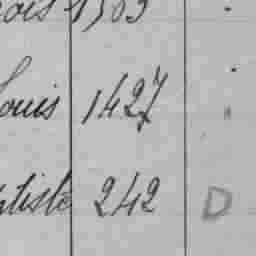 ois 1503
ouis 1427
tiste 242 D